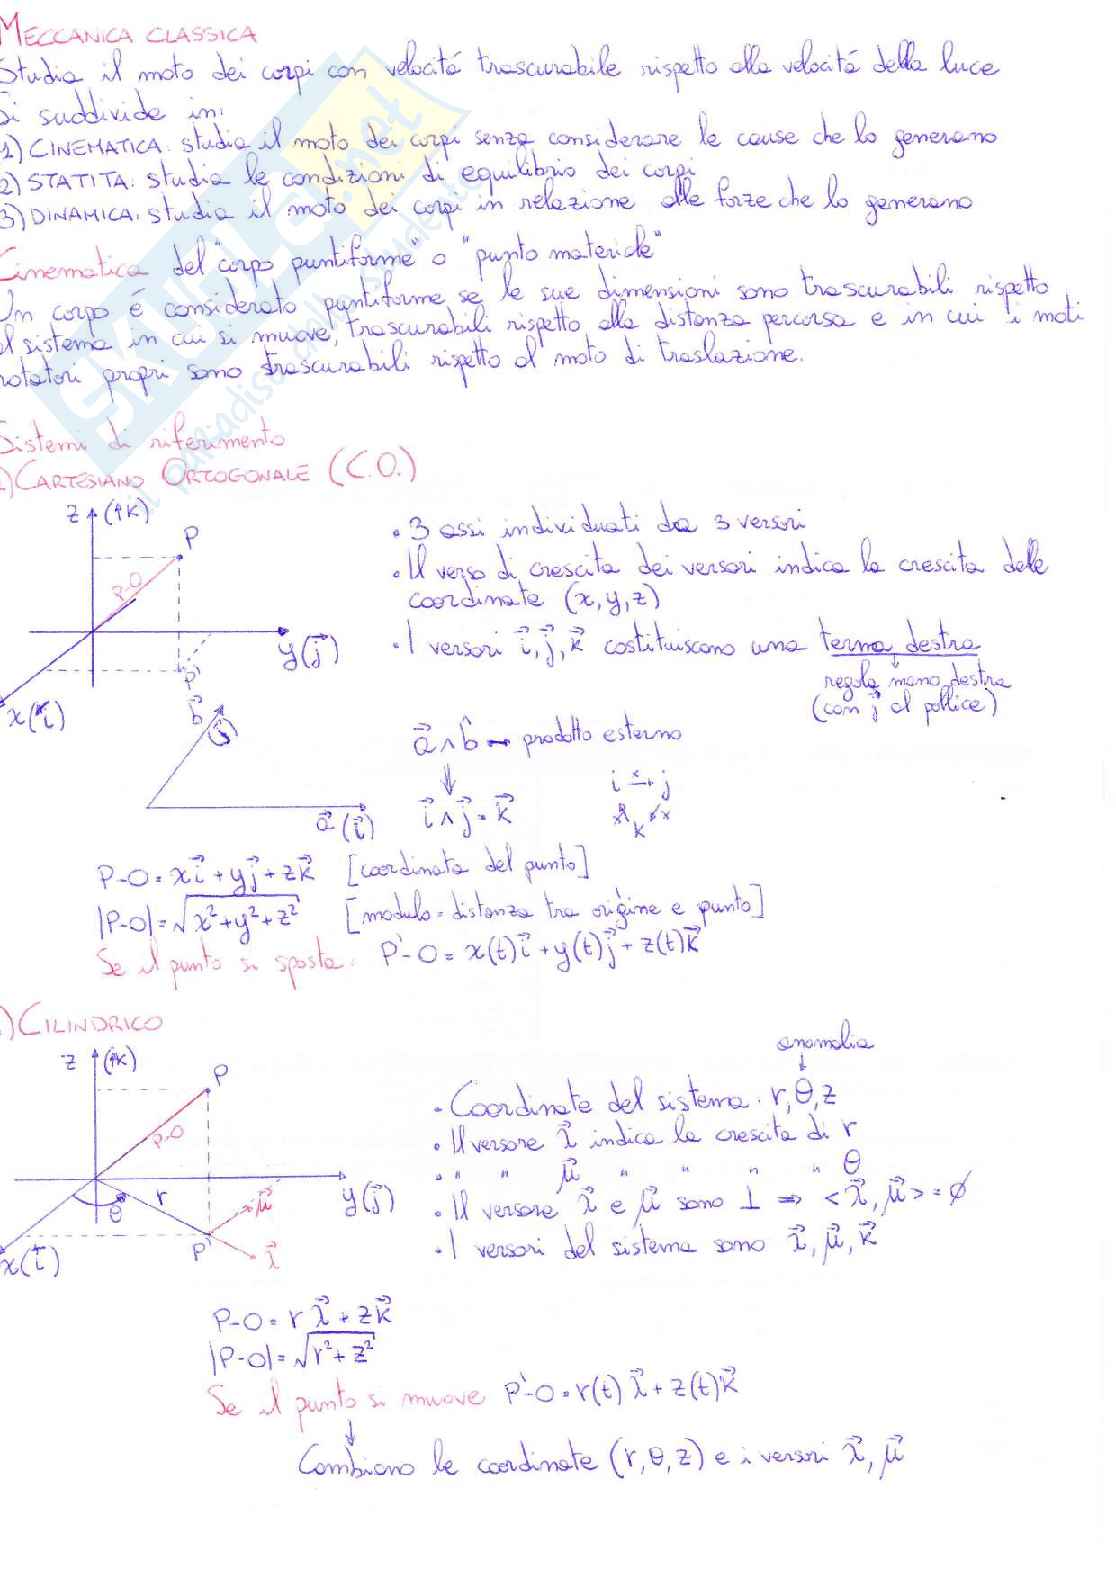 MECCANICA CLASSICA
Studia il moto dei corpi con velocitá trascurabile rispetto alla velocitá della luce
Si suddivide in:
1) CINEMATICA: studia il moto dei corpi senza considerare le cause che lo generano
2) STATITA: studia le condizioni di equilibrio dei corpi
3) DINAMICA: studia il moto dei corpi in relazione alle forze che lo generano
Cinematica del "corpo puntiforme" o "punto materiale"
Un corpo é considerato puntiforme se le sue dimensioni sono trascurabili rispetto
al sistema in cui si muove, trascurabili rispetto alla distanza percorsa e in cui i moti
rotatori propri sono trascurabili rispetto al moto di traslazione.
Sistemi di riferimento
1) CARTESIANO ORTOGONALE (C.O.)
z (k)
P
P-O
y(j⃗)
P'
x(i⃗)
• 3 assi individuati da 3 versori
• Il verso di crescita dei versori indica la crescita delle
coordinate (x,y,z)
• I versori i⃗, j⃗, k⃗ costituiscono una terna destra
regola mano destra
(con j⃗ al pollice)
b⃗
(j)
a⃗ (i⃗)
a⃗ ∧ b⃗ → prodotto esterno
i⃗ ∧ j⃗ = k⃗
i j
k
P-O = xi⃗ + yj⃗ + zk⃗ [coordinata del punto]
|P-O| = √x²+y²+z² [modulo = distanza tra origine e punto]
Se il punto si sposta: P'-O = x(t)i⃗ + y(t)j⃗ + z(t)k⃗
2) CILINDRICO
z (k)
P
P-O
r
θ
y(j⃗)
μ⃗
P'
λ⃗
x(i⃗)
anomalia
• Coordinate del sistema: r, θ, z
• Il versore λ⃗ indica la crescita di r
• " " μ⃗ " " " " θ
• Il versore λ⃗ e μ⃗ sono ⊥ ⇒ <λ⃗, μ⃗> = ∅
• I versori del sistema sono λ⃗, μ⃗, k⃗
P-O = r λ⃗ + zk⃗
|P-O| = √r²+z²
Se il punto si muove P'-O = r(t) λ⃗ + z(t)k⃗
Cambiano le coordinate (r, θ, z) e i versori λ⃗, μ⃗
SKUOLA.net
il paradiso dello studente